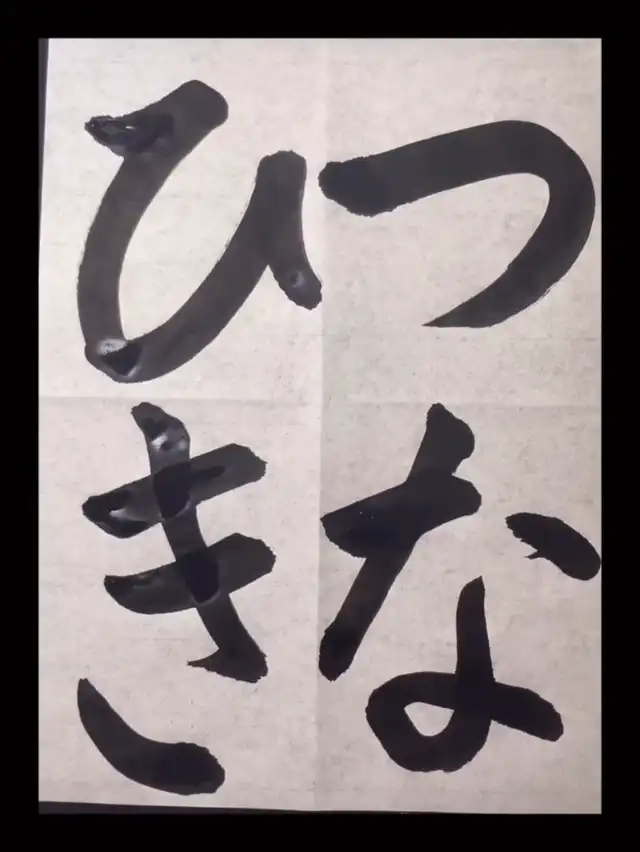 つな
ひき